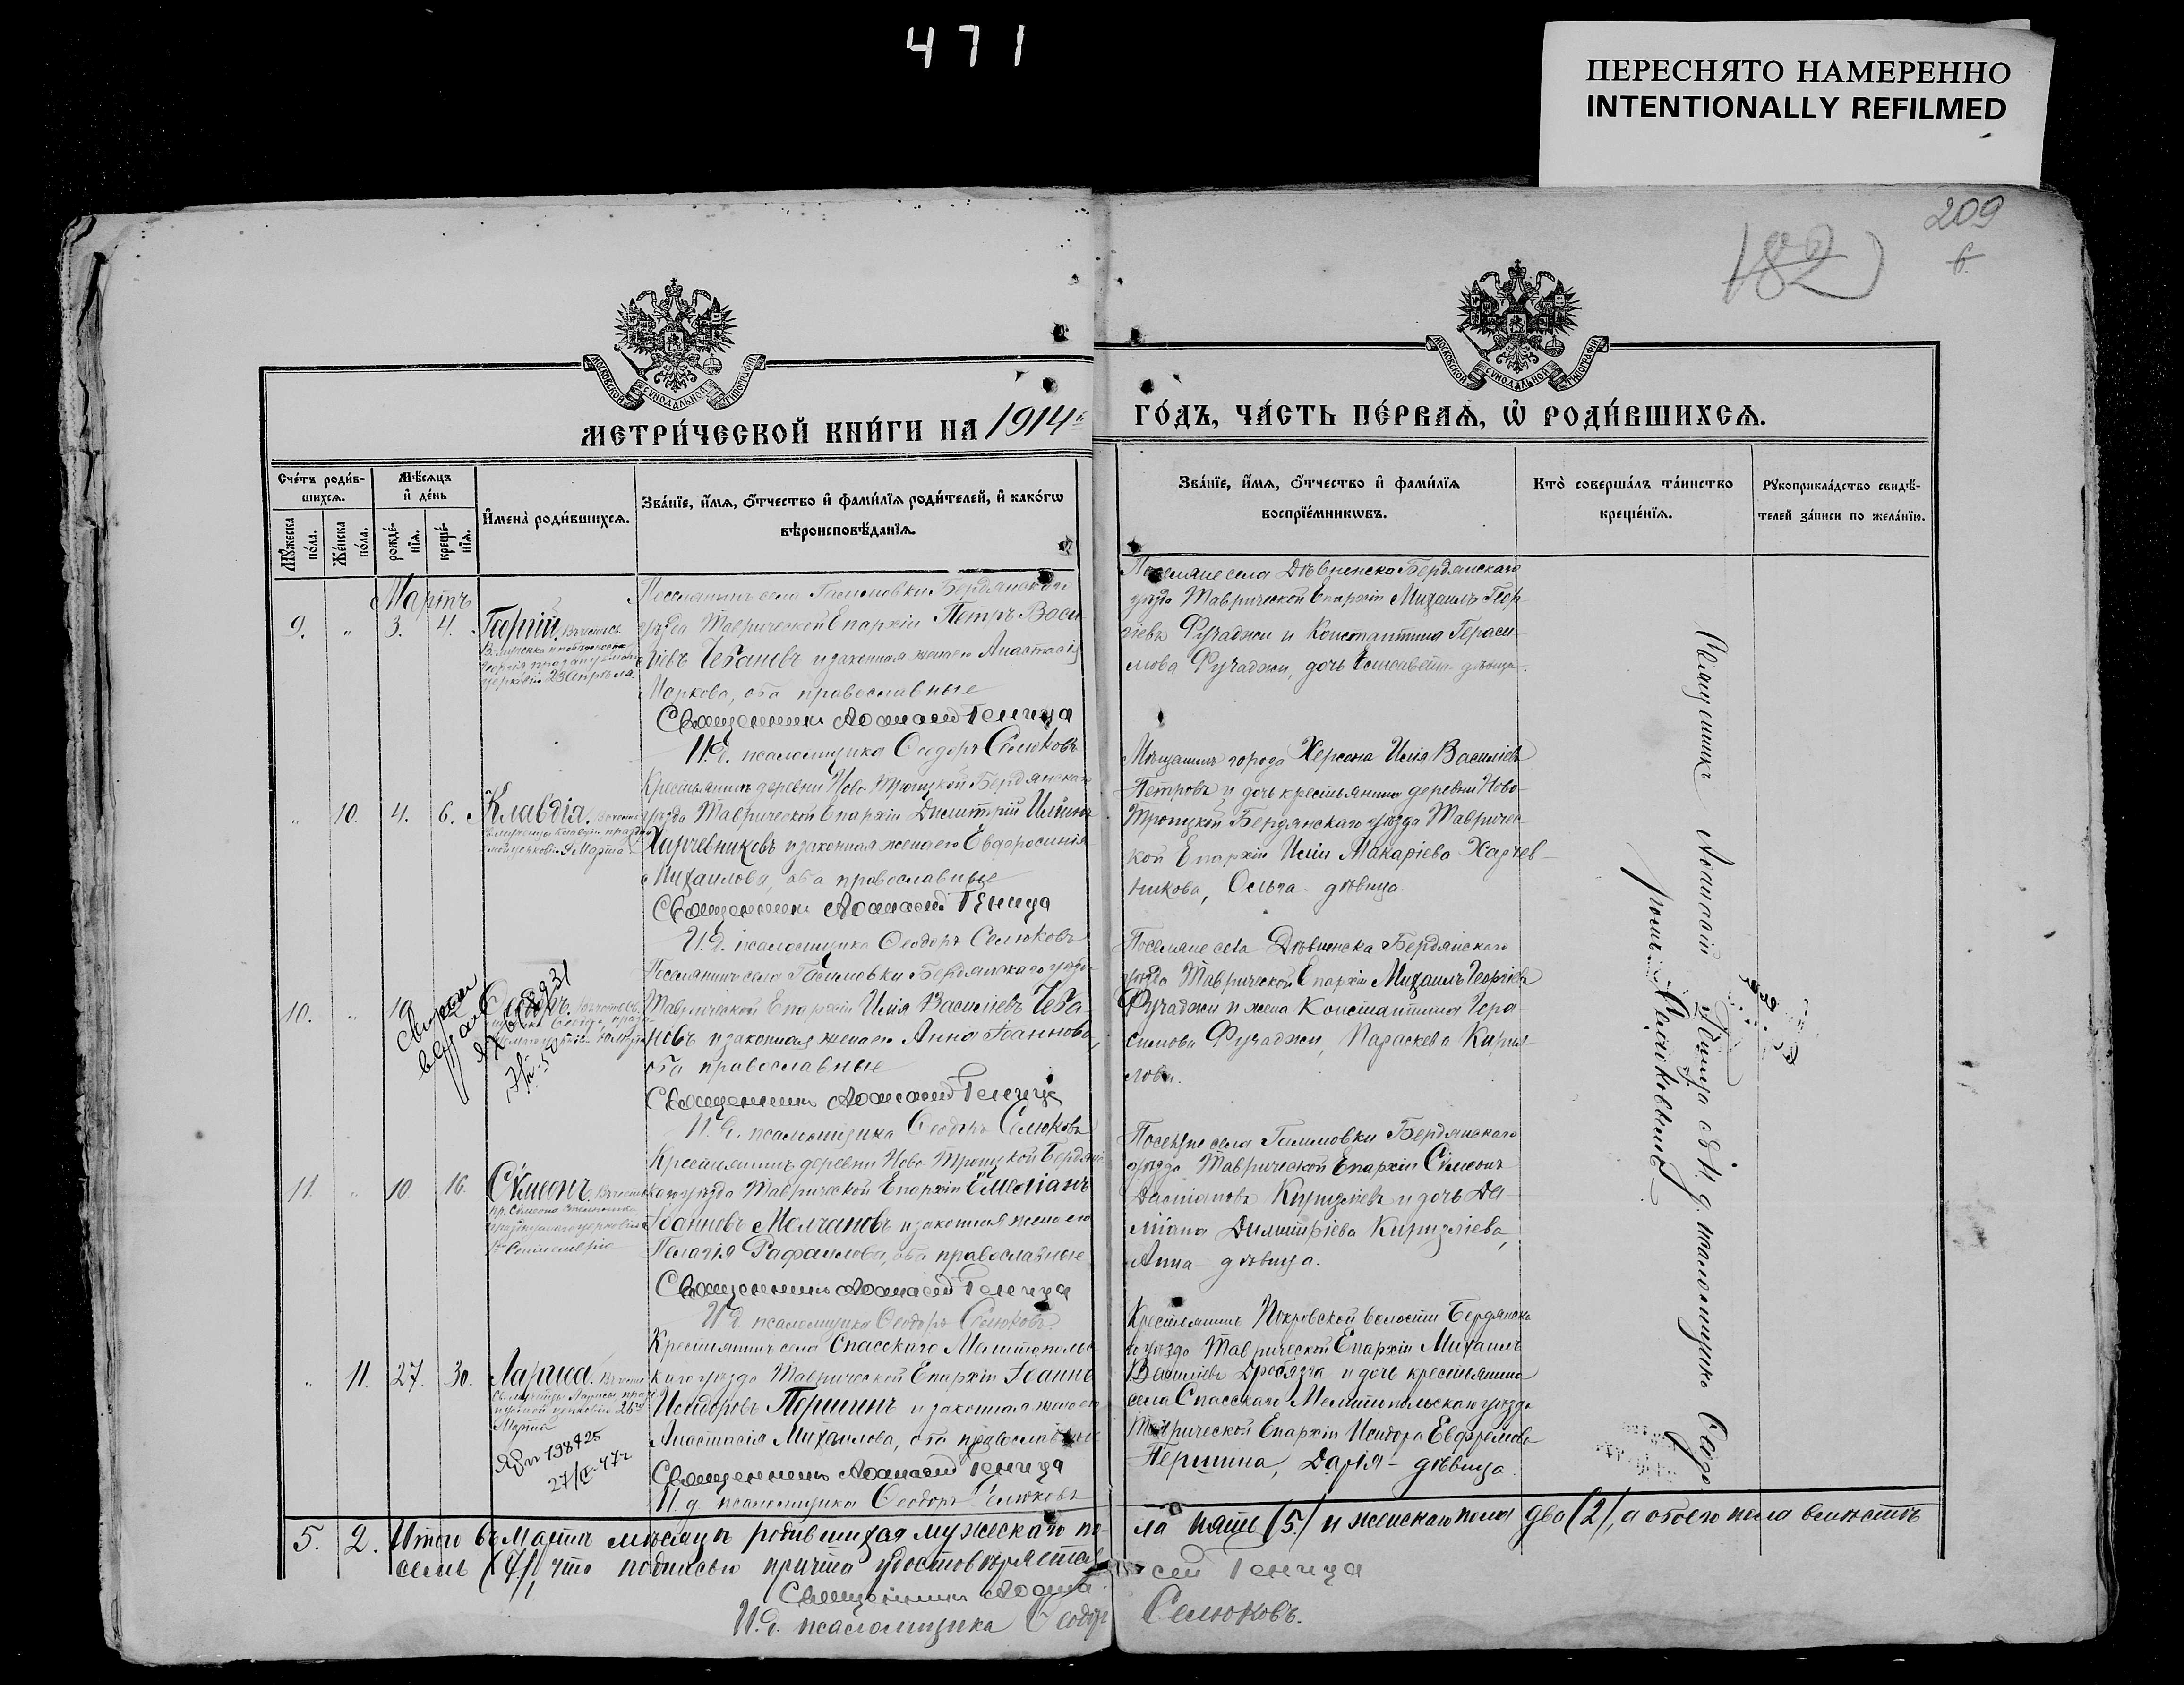 471
ПЕРЕСНЯТО НАМЕРЕННО
INTENTIONALLY REFILMED
209
6
182
МОСКОВСКОЙ СУНОДАЛЬНОЙ ТИПОГРАФІИ
МОСКОВСКОЙ СУНОДАЛЬНОЙ ТИПОГРАФІИ
МЕТРИ́ЧЕСКОЙ КНИ́ГИ НА 1914й
ГО́ДЪ, ЧА́СТЬ ПЕ́РВАѦ, Ѡ҆ РОДИ́ВШИХСѦ.
Сче́тъ роди́в-
шихсѧ.
Мѣ́сѧцъ
и҆ де́нь
Мꙋ́жеска по́ла.
Же́нска по́ла.
рожде́-
нїѧ.
креще́-
нїѧ.
И҆мена̀ роди́вшихсѧ.
Зва́нїе, и҆́мѧ, о҆́тчество и҆ фами́лїѧ роди́телей, и҆ како́гѡ
вѣроисповѣ́данїѧ.
Зва́нїе, и҆́мѧ, о҆́тчество и҆ фами́лїѧ
воспрїе́мникѡвъ.
Кто̀ соверша́лъ та́инство
креще́нїѧ.
Рꙋкоприкла́дство свидѣ́-
телей за́писи по жела́нїю.
Мартъ
9. " 3. 4.
Поселянинъ села Бердянскаго
уѣзда Таврической Епархіи Петръ Васи
ліевъ Чебаневъ и законная жена его Анастасія
Маркова, оба православные
Священникъ Аѳанасій Геница
И.д. псаломщика Ѳеодоръ Селюковъ
Поселяне села Бердянскаго
уѣзда Таврической Епархіи Михаилъ Геор-
гіевъ Фучаджи и Константина Гераси-
мова Фучаджи, дочь Елисавета дѣвица.
" 10. 4. 6. Клавдія.
мученицы Клавдіи
9 Марта
Крестьянинъ деревни Ново-Троицкой Бердянскаго
уѣзда Таврической Епархіи Димитрій Иліинъ
Харчевниковъ и законная жена его Евфросинія
Михаилова, оба православные
Священникъ Аѳанасій Геница
И.д. псаломщика Ѳеодоръ Селюковъ
Мѣщанинъ города Херсона Илія Василіевъ
Петровъ и дочь крестьянина деревни Ново-
Троицкой Бердянскаго уѣзда Тавричес-
кой Епархіи Иліи Макаріева Харчев-
никова, Ольга - дѣвица.
10. "
Поселянинъ села Бердянскаго уѣзда
Таврической Епархіи Илія Василіевъ Чеба-
новъ и законная жена его Анна Іоаннова,
оба православные
Священникъ Аѳанасій Геница
И.д. псаломщика Ѳеодоръ Селюковъ
Поселяне села Бердянскаго
уѣзда Таврической Епархіи Михаилъ Георгіевъ
Фучаджи и жена Константина Гера-
симова Фучаджи, Параскева Кирил-
лова.
11. " 10. 16. Сѵмеонъ.
пр. Сѵмеона Столпника
Крестьянинъ деревни Ново-Троицкой Бердянс
каго уѣзда Таврической Епархіи Емеліанъ
Іоанновъ Молчановъ и законная жена его
Пелагія Рафаилова, оба православные
Священникъ Аѳанасій Геница
И.д. псаломщика Ѳеодоръ Селюковъ.
Поселяне села Бердянскаго
уѣзда Таврической Епархіи Сѵмеонъ
Даміановъ и дочь Да-
міана Димитріева
Анна - дѣвица.
" 11. 27. 30. Лариса.
муч-цы Ларисы
26го
Марта
198425
27/IX-47г
Крестьянинъ села Спасскаго Мелитопольс
каго уѣзда Таврической Епархіи Іоаннъ
Исидоровъ Першинъ и законная жена его
Анастасія Михаилова, оба православные
Священникъ Аѳанасій Геница
И.д. псаломщика Ѳеодоръ Селюковъ
Крестьянинъ Покровской волости Бердянска
го уѣзда Таврической Епархіи Михаилъ
Василіевъ и дочь крестьянина
села Спасскаго Мелитопольскаго уѣзда
Таврической Епархіи Исидора Евфремова
Першина, Дарія - дѣвица.
Священникъ Аѳанасій Геница съ И. д. псаломщика Ѳеодо
ромъ Селюковымъ.
5. 2. Итого въ Мартѣ мѣсяцѣ родившихся мужескаго по-
ла пять (5) и женскаго пола два (2), а обоего пола вмѣстѣ
семь (7), что подписью причта удостовѣряется
Священникъ Аѳана
сій Геница
И.д. псаломщика Ѳеодоръ
Селюковъ.